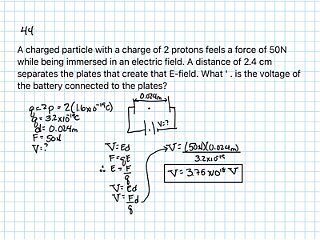 44
A charged particle with a charge of 2 protons feels a force of 50N
while being immersed in an electric field. A distance of 2.4 cm
separates the plates that create that E-field. What ' . is the voltage of
the battery connected to the plates?
0.024m
V=?
q=2p = 2(1.6x10⁻¹⁹C)
q=3.2x10⁻¹⁹C
d=0.024m
F=50N
V=?
V=Ed
F=qE
∴ E=F/q
V=Ed
V=Fd/q
V=(50N)(0.024m)/3.2x10⁻¹⁹
V=3.75x10¹⁸ V